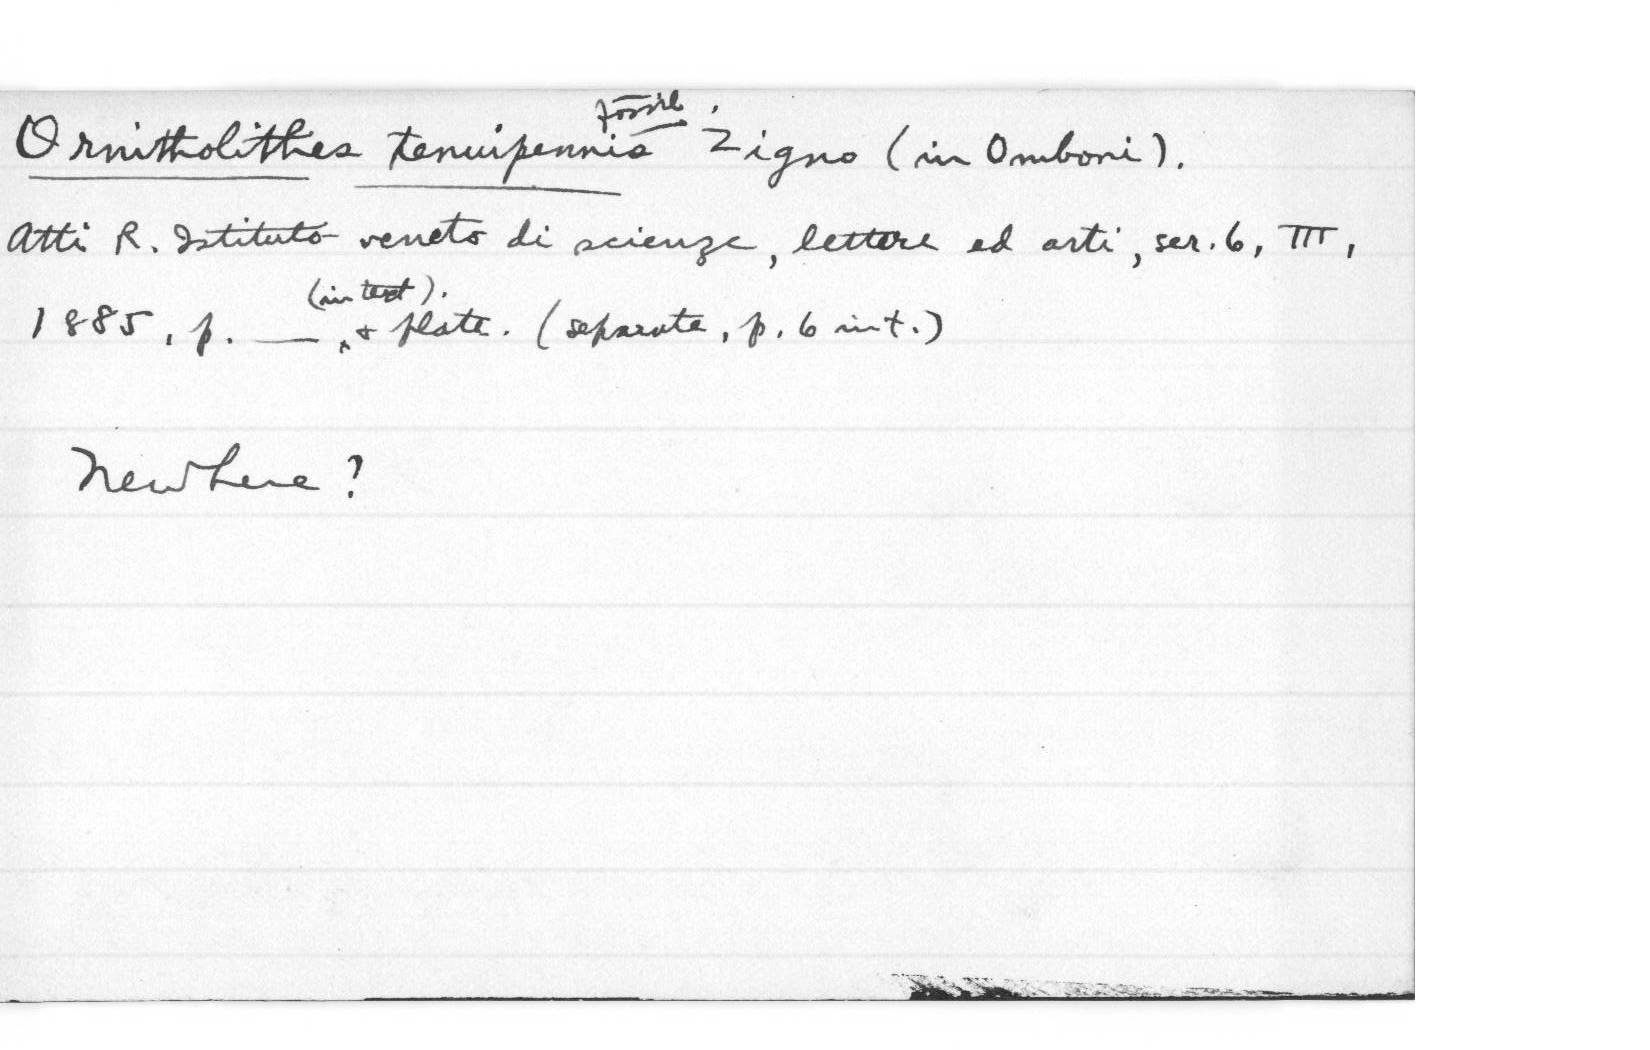 Fossil.
Ornitholithes tenuipennis Zigno (in Omboni).
Atti R. Istituto veneto di scienze, lettere ed arti, ser. 6, III,
(in text).
1885, p. — ‸ & plate. (separate, p. 6 int.)
New here?